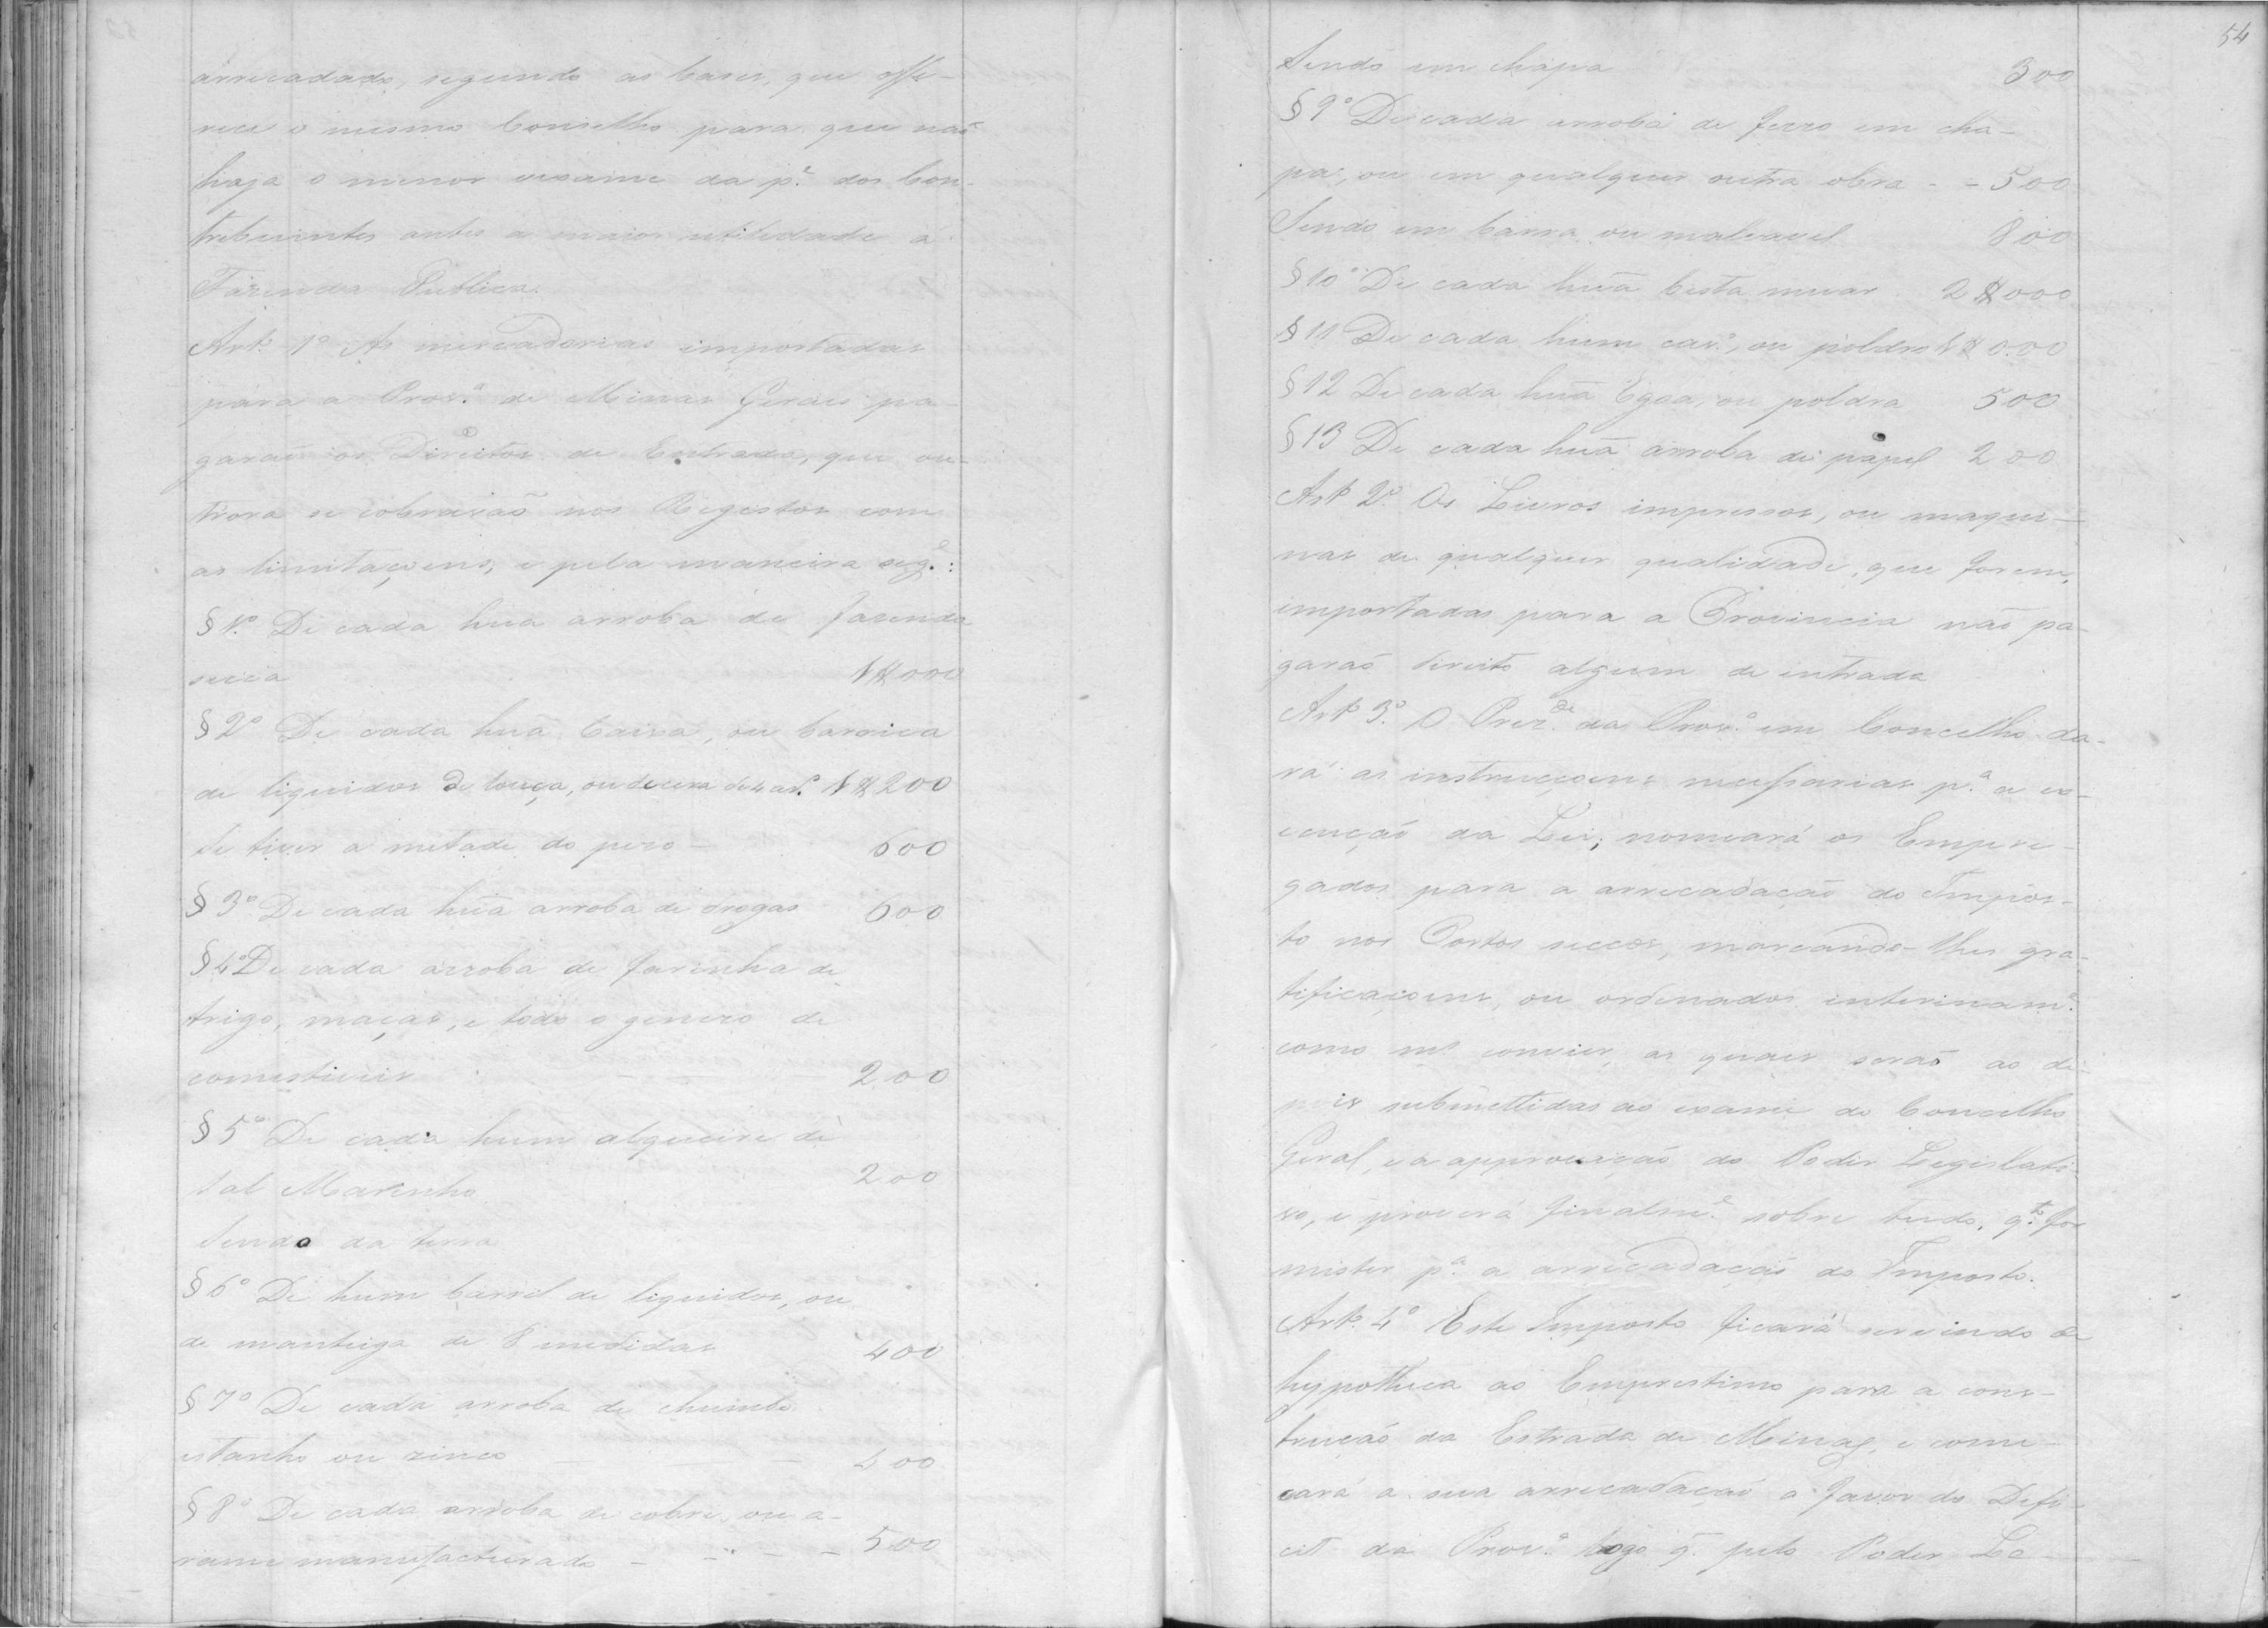 arrecadado, segundo as bases, que offe-
rece o mesmo Conselho para que naõ
haja o menor vexame da p.e dos Con-
tribuintes antes a maior utilidade á
Fazenda Publica.
Art.o 1o As mercadorias importadas
para a Prov.a de Minas Geraes pa-
garaõ os Direitos de Entrada, que ou-
trora se cobravaõ nos Registos com
as limitaçoens, e pela maneira seg.e:
§ 1o. De cada huã arroba de fazenda
secca 1$000
§ 2o De cada huã caixa, ou barrica
de liquidos de louça, ou de cera de 4 ar.s 1$200
Se tiver a metade do pezo - 600
§ 3o De cada huã arroba de drogas 600
§ 4o De cada arroba de farinha de
trigo, maças, e todo o genero de
comestiveis - 200
§ 5o De cada hum alqueire de
Sal Marinho 200
Sendo da terra
§ 6o De hum barril de liquidos, ou
de manteiga de 8 medidas 400
§ 7o De cada arroba de chumbo
estanho ou zinco - - 400
§ 8o De cada arroba de cobre, ou a-
rame manufacturado - - - - 500
54
Sendo em chapa 300
§ 9o De cada arroba de ferro em cha-
pa, ou em qualquer outra obra - - 500
Sendo em barra ou maleavel 800
§ 10o De cada huã besta muar 2$000
§ 11 De cada hum cav.o, ou poldro 1$000
§ 12 De cada huã Egoa, ou poldra 500
§ 13 De cada huã arroba de papel 200
Art.o 2o. Os Livros impressos, ou maqui-
nas de qualquer qualidade, que forem
importadas para a Provincia naõ pa-
garaõ direito algum de entrada
Art.o 3.o O Prez.de da Prov.a em Concelho da-
rá as instrucçoens necessarias p.a a ex-
ecuçaõ da Lei; nomeará os Empre-
gados para a arrecadaçaõ do Impos-
to nos Portos seccos, marcando-lhes gra-
tificaçoens, ou ordenados interinam.e
como m.s convier, as quaes seraõ ao de-
pois submettidas ao exame do Concelho
Geral, e a approvaçaõ do Poder Legislati-
vo, e proverá finalm.e sobre tudo, q.to for
mister p.a a arrecadaçaõ do Imposto.
Art.o 4o Este Imposto ficará servindo de
hypotheca ao Emprestimo para a cons-
truçaõ da Estrada de Minas, e come-
çará a sua arrecadaçaõ a favor do Defi-
cit da Prov.a logo q. pelo Poder Le-